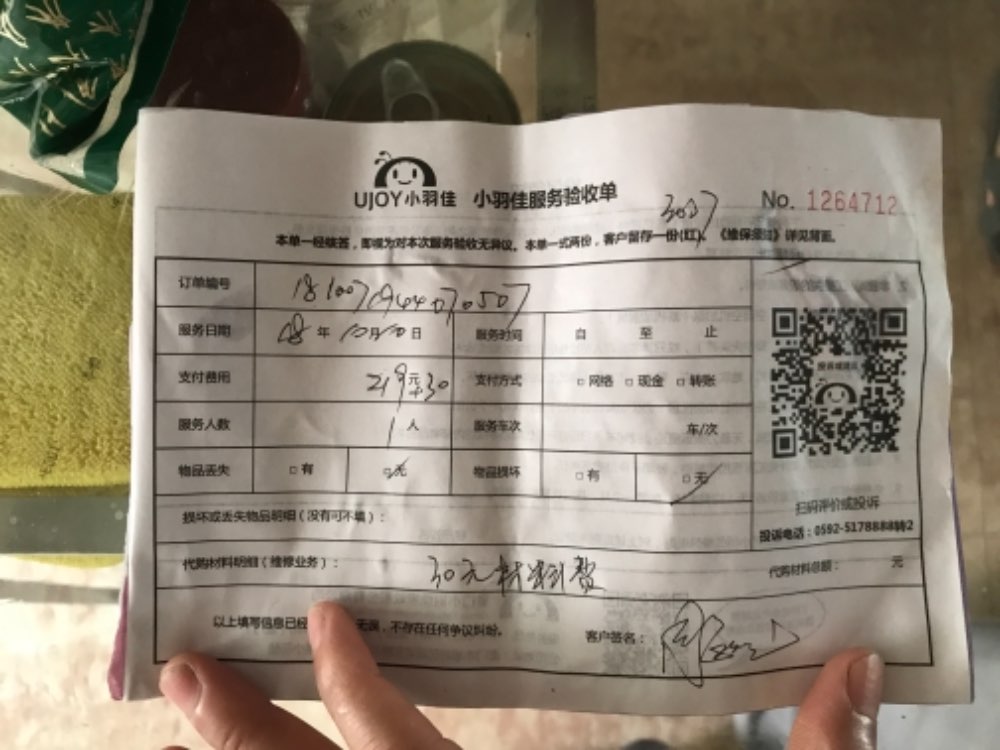 UJOY小羽佳 小羽佳服务验收单
3037
No. 1264712
本单一经核签，即视为对本次服务验收无异议。本单一式两份，客户留存一份(红)。《维保须知》详见背面。
订单编号
服务日期 18 年 10月10日 服务时间 自 至 止
支付费用 219元+30 支付方式 □网络 □现金 □转账
服务人数 1人 服务车次 车/次
物品丢失 □有 □无 物品损坏 □有 □无
扫码评价或投诉
损坏或丢失物品明细（没有可不填）：
投诉电话：0592-5178888转2
代购材料明细（维修业务）： 30元材料费 代购材料总额： 元
以上填写信息已经 无误，不存在任何争议纠纷。 客户签名：